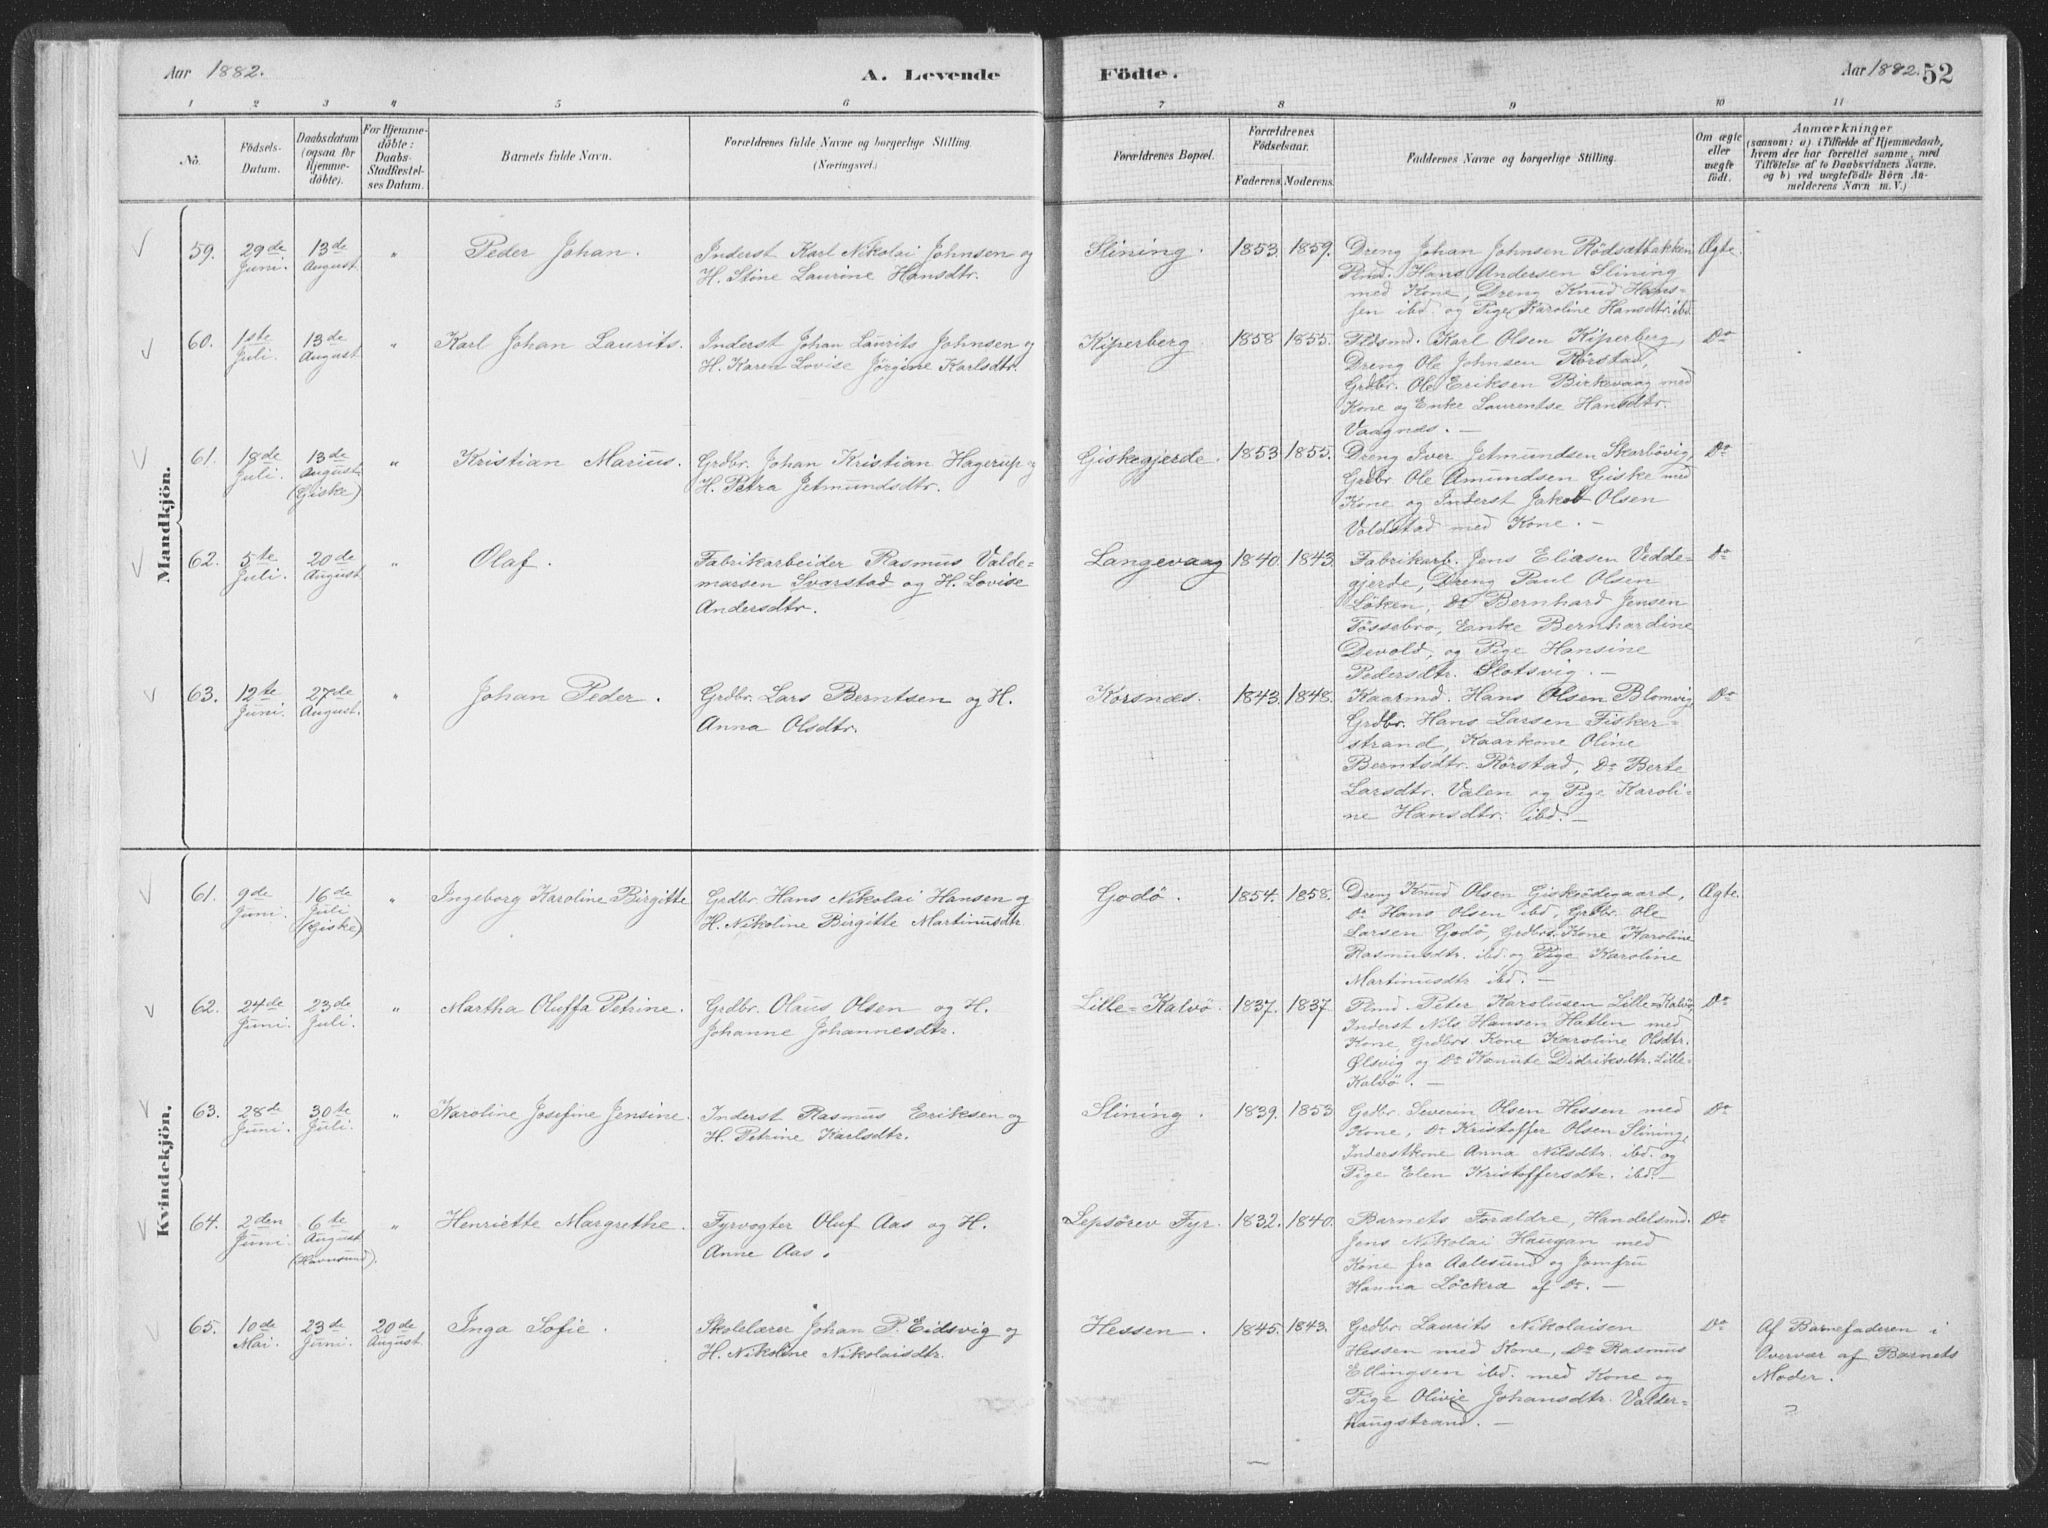 Aar 1882.
A. Levende
Födte.
Aar 1882. 52
1 2 3 4 5 6 7 8 9 10 11
No.
Födsels-
Datum.
Daabsdatum
(ogsaa for
Hjemme-
döbte).
For Hjemme-
döbte:
Daabs-
Stadfæstel-
ses Datum.
Barnets fulde Navn.
Forældrenes fulde Navne og borgerlige Stilling.
(Næringsvei.)
Forældrenes Bopæl.
Forældrenes
Födselsaar.
Faderens. Moderens.
Faddernes Navne og borgerlige Stilling.
Om ægte
eller
uægte
födt.
Anmærkninger
(saasom: a) i Tilfælde af Hjemmedaab,
hvem der har forrettet samme, med
Tilföielse af to Daabsvidners Navne,
og b) ved uægtefödte Börn An-
melderens Navn m. V.)
Mandkjön.
59.
29de
Juni.
13de
August.
"
Peder Johan.
Inderst Karl Nikolai Johnsen og
H. Stine Laurine Hansdtr.
Slining.
1853. 1859.
Dreng Johan Johnsen Rödsætbakken
Plmd. Hans Andersen Slining
med Kone, Dreng Knud Hans-
sen ibd. og Pige Karoline Hansdtr. ibd.
Ægte.
60.
1ste
Juli.
13de
August
"
Karl Johan Laurits.
Inderst Johan Laurits Johnsen og
H. Karen Lovise Jörgine Karlsdtr.
Kiperberg.
1858 1855.
Pldsmd. Karl Olsen Kiperberg,
Dreng Ole Johnsen Rörstad,
Grdbr. Ole Eriksen Birkevaag med
Kone og Enke Laurentse Hansdtr.
Vaagnes. –
Do
61.
18de
Juli.
13de
August
(Giske)
"
Kristian Marius.
Grdbr. Johan Kristian Hagerup og
H. Petra Jetmundsdtr.
Giskegjerde.
1853 1855.
Dreng Iver Jetmundsen Skarbövig,
Grdbr. Ole Amundsen Giske med
Kone og Inderst Jakob Olsen
Voldstad med Kone. –
Do
62.
5te
Juli.
20de
August
"
Olaf.
Fabrikarbeider Rasmus Valde-
marsen Svarstad og H. Lovise
Andersdtr.
Langevaag
1840. 1843.
Fabrikarb. Jens Eliasen Vedde-
gjerde, Dreng Paul Olsen
Löken, Do Bernhard Jensen
Fössebro, Enke Bernhardine
Devold, og Pige Hansine
Pedersdtr. Slotsvig. –
Do
63.
12te
Juni.
27de
August.
"
Johan Peder.
Grdbr. Lars Berntsen og H.
Anna Olsdtr.
Korsnes.
1843. 1848.
Kaarmd. Hans Olsen Blomvig
Grdbr. Hans Larsen Fisker-
strand, Kaarkone Oline
Berntsdtr. Rörstad, Do Berte
Larsdtr. Valen og Pige Karoli-
ne Hansdtr. ibd. –
Do
Kvindekjön.
61.
9de
Juni.
16de
Juli
(Giske)
"
Ingeborg Karoline Birgitte
Grdbr. Hans Nikolai Hansen og
H. Nikoline Birgitte Martinusdtr
Godö.
1854. 1858.
Dreng Knud Olsen Giskeödegaard,
Do Hans Olsen ibd, Grdbr. Ole
Larsen Godö, Grdbrs. Kone Karoline
Rasmusdtr. ibd. og Pige Karoline
Martinusdtr ibd. –
Ægte.
62.
24de
Juni.
23de
Juli.
"
Martha Oluffa Petrine.
Grdbr. Olaus Olsen og H.
Johanne Johannesdtr.
Lille-Kalvö.
1837. 1837
Plmd. Peter Karolusen Lille-Kalvö,
Inderst Nils Hansen Hatlen med
Kone, Grdbrs. Kone Karoline Olsdtr.
Ølsvig og Do Kanute Didriksdtr. Lille-
Kalvö. –
Do
63.
28de
Juni.
30te
Juli.
"
Karoline Josefine Jensine.
Inderst Rasmus Eriksen og
H. Petrine Karlsdtr.
Slining.
1839. 1853
Grdbr. Severin Olsen Hessen med
Kone, Do Kristoffer Olsen Slining,
Inderstkone Anna Nilsdtr. ibd. og
Pige Elen Kristoffersdtr. ibd. –
Do
64.
2den
Juni.
6te
August
(Havnsund).
"
Henriette Margrethe.
Fyrvogter Oluf Aas og H.
Anne Aas.
Lepsörev Fyr.
1832. 1840.
Barnets Forældre, Handelsmd.
Jens Nikolai Haugan med
Kone fra Aalesund og Jomfru
Hanna Löckra af Do. –
Do
65.
10de
Mai.
23de
Juni.
20de
August.
Inga Sofie.
Skolelærer Johan P. Eidsvig og
H. Nikoline Nikolaisdtr.
Hessen.
1845. 1843.
Grdbr. Laurits Nikolaisen
Hessen med Kone, Do Rasmus
Ellingsen ibd. med Kone og
Pige Olivie Johansdtr. Valder-
haugstrand. –
Do
Af Barnefaderen i
Overvær af Barnets
Moder.